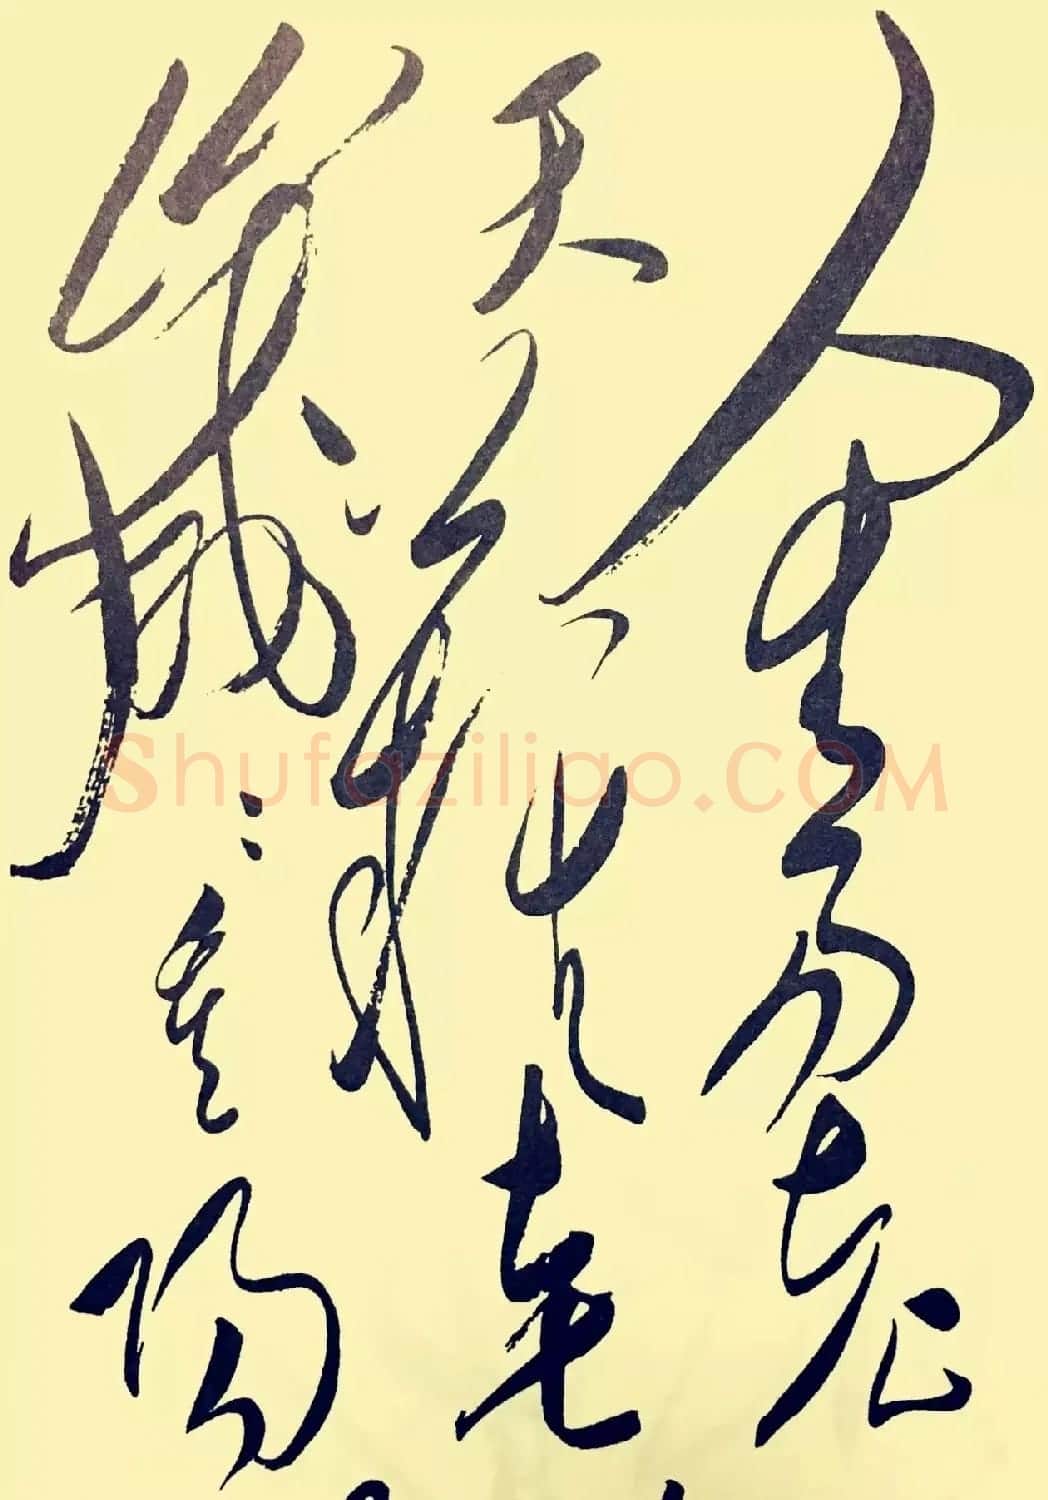 人生易老
天難老
歲々重陽
Shufaziliao.COM